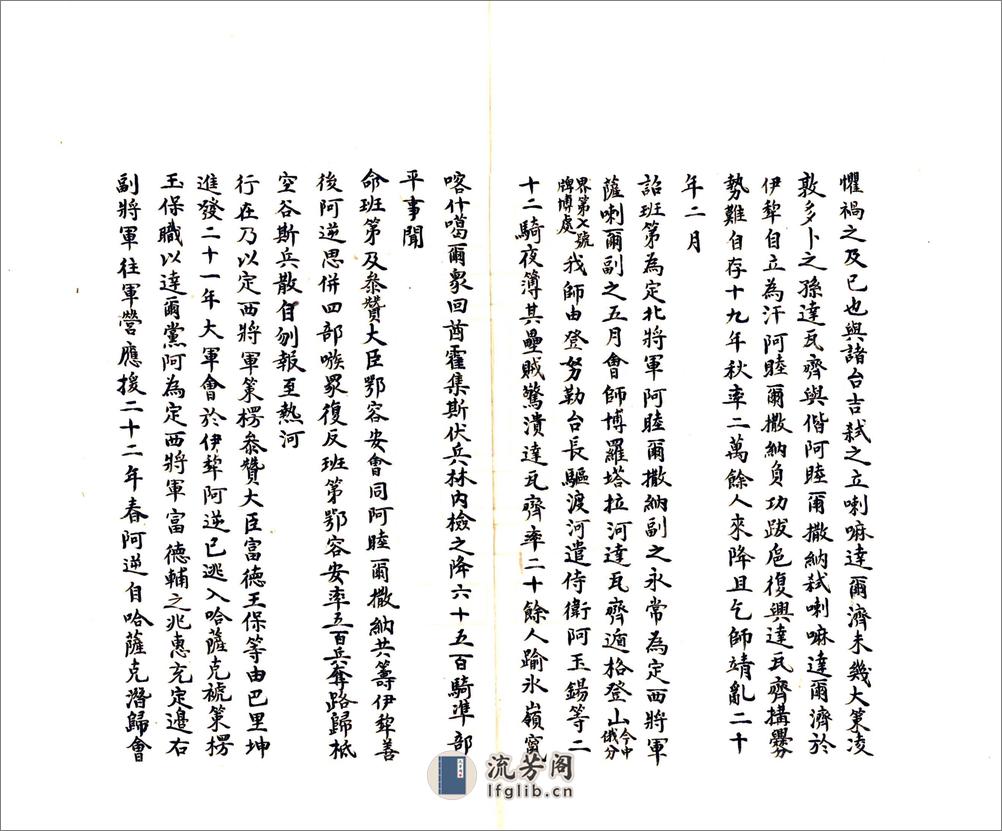 懼禍之及已也與諸台吉弒之立喇嘛達爾濟未幾大策凌
敦多卜之孫達瓦齊與偕阿睦爾撒納弒喇嘛達爾濟於
伊犂自立為汗阿睦爾撒納負功跋扈復與達瓦齊搆釁
勢難自存十九年秋率二萬餘人來降且乞師靖亂二十
年二月
詔班第為定北將軍阿睦爾撒納副之永常為定西將軍
薩喇爾副之五月會師博羅塔拉河達瓦齊遁格登山今中俄分
界第七號牌博處我師由登努勒台長驅渡河遣侍衛阿玉錫等二
十二騎夜簿其壘賊驚潰達瓦齊率二十餘人踰氷嶺竄
喀什噶爾衆回酋霍集斯伏兵林内檢之降六十五百騎準部
平事聞
命班第及叅贊大臣鄂容安會同阿睦爾撒納共籌伊犂善
後阿逆思併四部嗾衆復反班第鄂容安率五百兵奪路歸柢
空谷斯兵散自刎報至熱河
行在乃以定西將軍策楞叅贊大臣富德玉保等由巴里坤
進發二十一年大軍會於伊犂阿逆已逃入哈薩克褫策楞
玉保職以達爾黨阿為定西將軍富德輔之兆惠充定邉右
副將軍往軍營應援二十二年春阿逆自哈薩克潛歸會
流芳阁
lfglib.cn